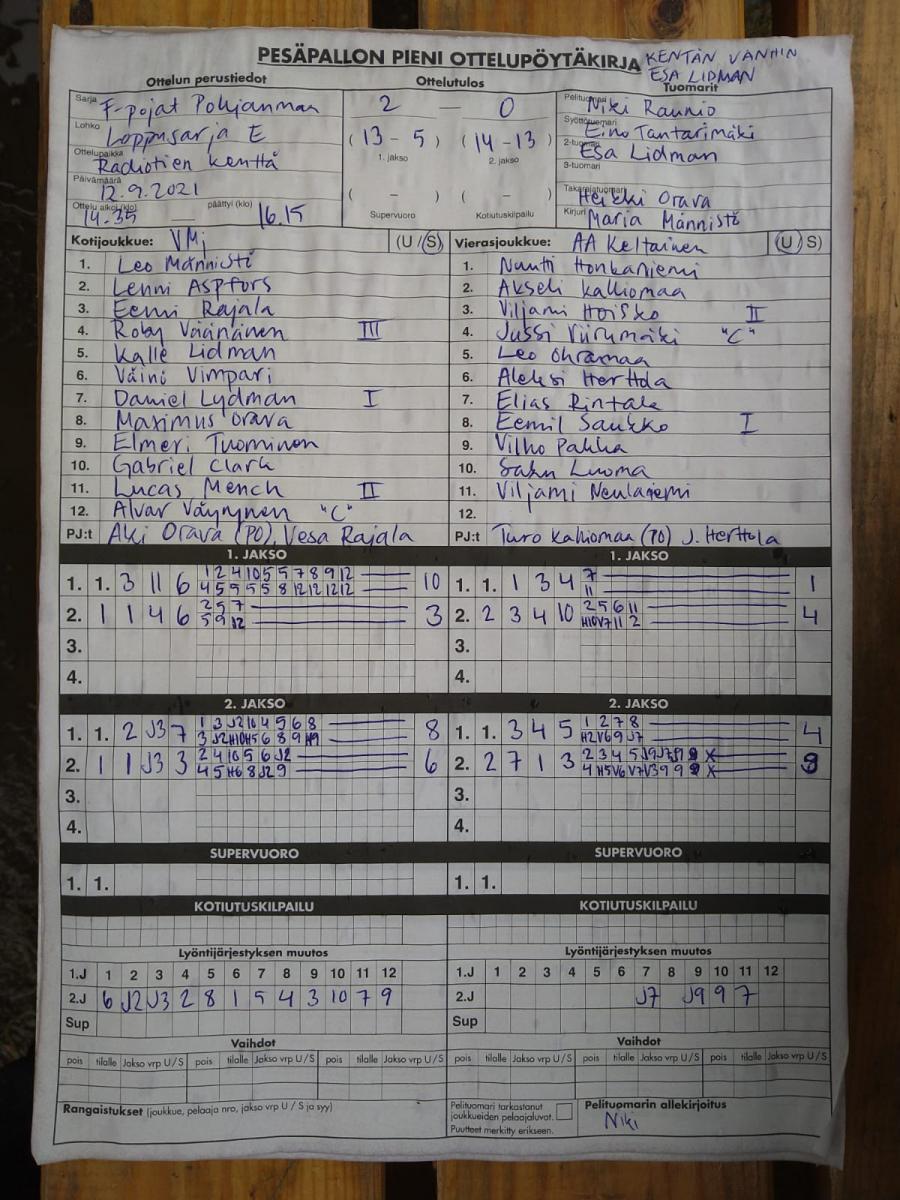 PESÄPALLON PIENI OTTELUPÖYTÄKIRJA
KENTÄN VANHIN
ESA LIDMAN
Ottelun perustiedot
Ottelutulos
Tuomarit
Sarja F-pojat Pohjanmaa
Lohko Loppusarja E
Ottelupaikka Radiotien kenttä
Päivämäärä 12.9.2021
Ottelu alkoi (klo) 14.35 — päättyi (klo) 16.15
2 — 0
(13 - 5) (14 - 13)
1. jakso 2. jakso
( - ) ( - )
Supervuoro Kotiutuskilpailu
Pelituomari Niki Raunio
Syöttötuomari Eino Tantarimäki
2-tuomari Esa Lidman
3-tuomari
Takarajatuomari Heikki Orava
Kirjuri Maria Männistö
Kotijoukkue: VMj (U / S)
1. Leo Männistö
2. Lenni Aspfors
3. Eemi Rajala
4. Roby Väänänen III
5. Kalle Lidman
6. Väinö Vimpari
7. Daniel Lydman I
8. Maximus Orava
9. Elmeri Tuominen
10. Gabriel Clark
11. Lucas Mench II
12. Alvar Väyrynen "C"
PJ:t Aki Orava (PO), Vesa Rajala
Vierasjoukkue: AA Keltainen (U / S)
1. Nuutti Honkaniemi
2. Akseli Kalliomaa
3. Viljami Hoisko II
4. Jussi Viirumäki "C"
5. Leo Ohramaa
6. Aleksi Herttola
7. Elias Rintala
8. Eemil Saukko I
9. Vilho Pakka
10. Luoma
11. Viljami Neulaniemi
12.
PJ:t Turo Kalliomaa (PO) J. Herttola
1. JAKSO
1. 1. 3 11 6 1 2 4 10 5 5 7 8 9 12 10
4 5 9 5 5 8 12 12 12 12
2. 1 1 4 6 2 5 7 3
5 9 12
3.
4.
1. JAKSO
1. 1. 1 3 4 7 1
11
2. 2 3 4 10 2 5 6 11 4
H10 V7 11 2
3.
4.
2. JAKSO
1. 1. 2 J3 7 1 3 J2 10 4 5 6 8 8
3 J2 H10 H5 6 8 9 H9
2. 1 1 J3 3 2 4 10 5 6 J2 6
4 5 H6 8 J2 9
3.
4.
2. JAKSO
1. 1. 3 4 5 1 2 7 8 4
H2 V6 9 J7
2. 2 7 1 3 2 3 4 5 J9 J7 J9 9 X 9
4 H5 V6 V7 V3 9 9 9 X
3.
4.
SUPERVUORO
1. 1.
SUPERVUORO
1. 1.
KOTIUTUSKILPAILU
KOTIUTUSKILPAILU
Lyöntijärjestyksen muutos
1.J 1 2 3 4 5 6 7 8 9 10 11 12
2.J 6 J2 J3 2 8 1 5 4 3 10 7 9
Sup
Lyöntijärjestyksen muutos
1.J 1 2 3 4 5 6 7 8 9 10 11 12
2.J J7 J9 9 7
Sup
Vaihdot
pois tilalle Jakso vrp U / S pois tilalle Jakso vrp U / S pois tilalle Jakso vrp U / S
Vaihdot
pois tilalle Jakso vrp U / S pois tilalle Jakso vrp U / S pois tilalle Jakso vrp U / S
Rangaistukset (joukkue, pelaaja nro, jakso vrp U / S ja syy)
Pelituomari tarkastanut
joukkueiden pelaajaluvat.
Puutteet merkitty erikseen.
Pelituomarin allekirjoitus
Niki